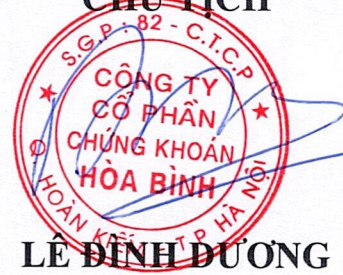 CHỦ TỊCH
S.G.P: 82 - C.T.C.P
CÔNG TY
CỔ PHẦN
CHỨNG KHOÁN
HÒA BÌNH
HOÀN KIẾM T.P HÀ NỘI
LÊ ĐÌNH DƯƠNG